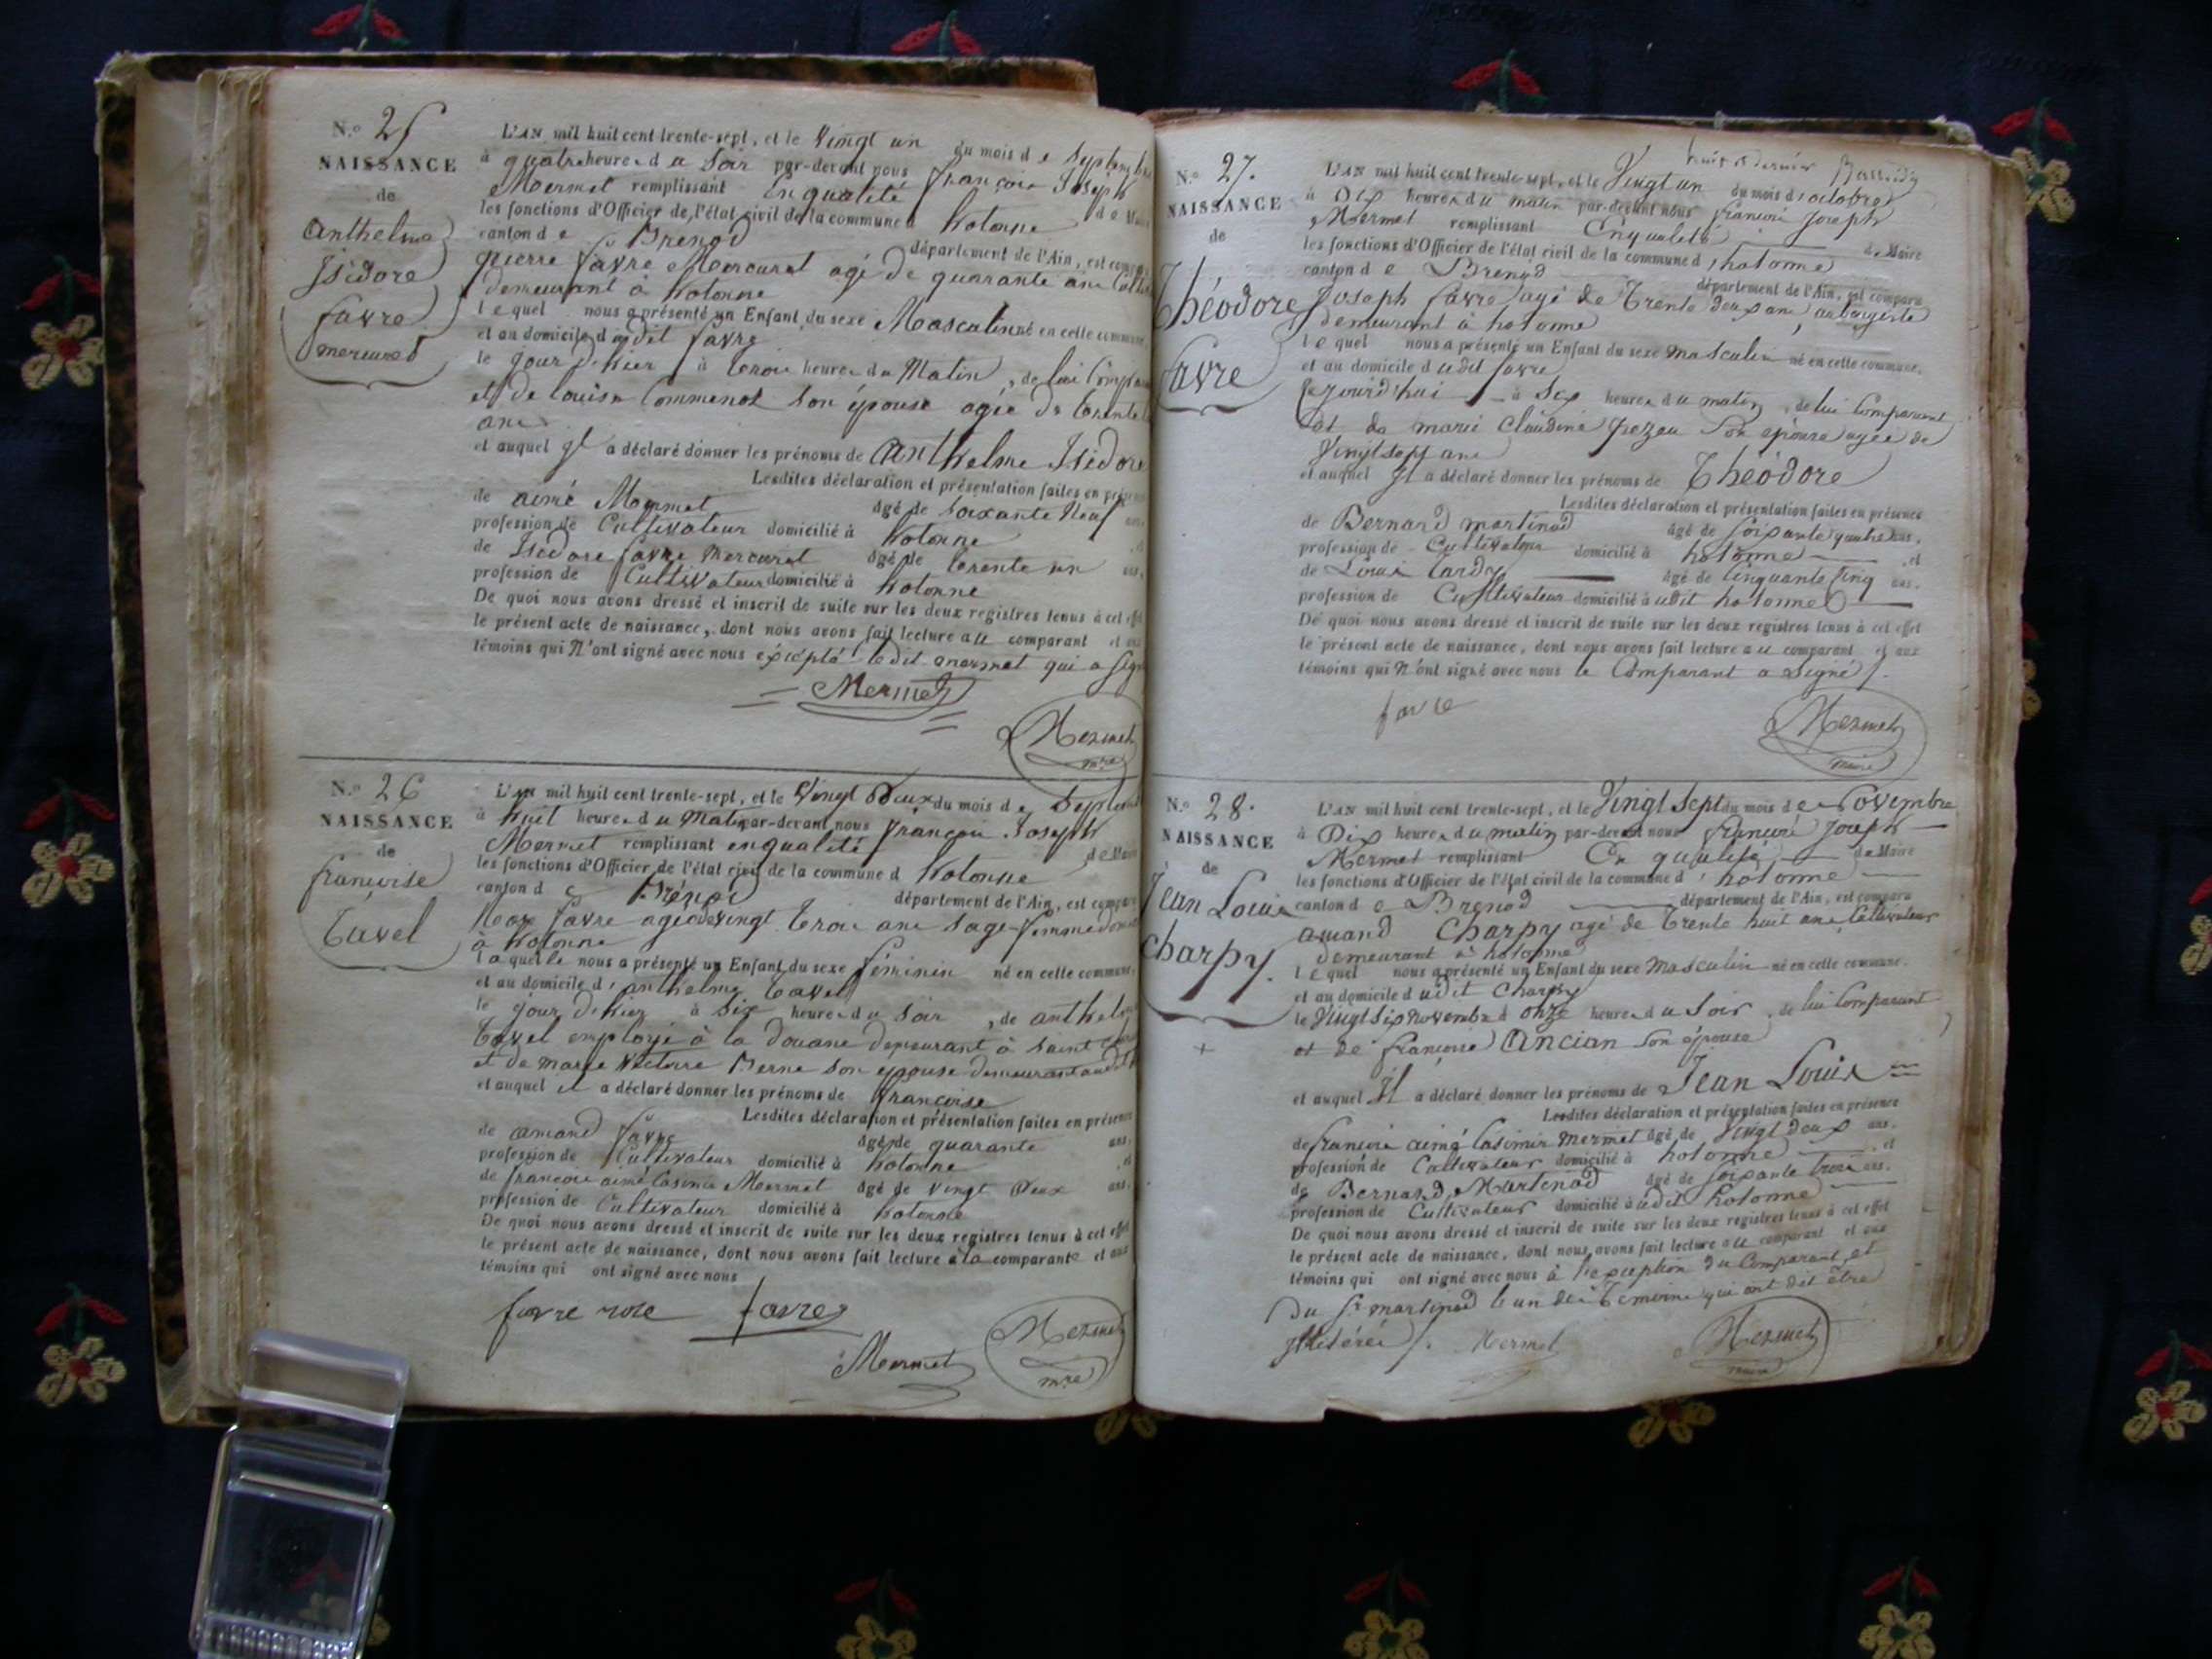 N.º 25
NAISSANCE
de
Anthelme
Isidore
favre
mercuret
L'AN mil huit cent trente-sept, et le Vingt un du mois de Septembre
à quatre heures du Soir par-devant nous françois Joseph
Mermet remplissant En qualité de Maire
les fonctions d'Officier de l'état civil de la commune d hotonne
canton de Brenod département de l'Ain, est comparu
pierre favre Mercuret agé de quarante ans
demeurant à hotonne
lequel nous a présenté un Enfant du sexe Masculin né en cette commune
et au domicile dudit favre
le jour d'hier à trois heures du Matin, de lui Comparant
et de louise Commenot son épouse agée de trente
ans
et auquel Il a déclaré donner les prénoms de Anthelme Isidore
Lesdites déclaration et présentation faites en présence
de aimé Mermet âgé de Soixante Neuf ans
profession de Cultivateur domicilié à hotonne, et
de Isidore favre Mercuret âgé de trente un ans.
profession de Cultivateur domicilié à hotonne
De quoi nous avons dressé et inscrit de suite sur les deux registres tenus à cet effet
le présent acte de naissance, dont nous avons fait lecture au comparant et aux
témoins qui N'ont signé avec nous éxcépté ledit mermet qui a signé
Mermet
Mermet
mre
N.º 26
NAISSANCE
de
françoise
Tavel
L'AN mil huit cent trente-sept, et le Vingt Deux du mois de Septembre
à huit heures du Matin par-devant nous françois Joseph
Mermet remplissant en qualité de Maire
les fonctions d'Officier de l'état civil de la commune d hotonne
canton de Brénod département de l'Ain, est comparu
Roze favre agée de vingt trois ans Sage-femme
à hotonne
laquelle nous a présenté un Enfant du sexe féminin né en cette commune,
et au domicile d'anthelme Tavel
le jour d'hier à six heures du Soir, de anthelme
Tavel employé à la Douane demeurant à Saint
et de marie Victoire Berne son épouse demeurant audit
et auquel il a déclaré donner les prénoms de françoise
Lesdites déclaration et présentation faites en présence
de amand favre âgé de quarante ans.
profession de Cultivateur domicilié à hotonne, et
de françois aimé Casimir Mermet âgé de vingt Deux ans.
profession de Cultivateur domicilié à hotonne
De quoi nous avons dressé et inscrit de suite sur les deux registres tenus à cet effet
le présent acte de naissance, dont nous avons fait lecture à la comparante et aux
témoins qui ont signé avec nous
favre roze favre
Mermet
Mermet
mre
huit et dernier
N.º 27.
NAISSANCE
de
Théodore
favre
L'AN mil huit cent trente-sept, et le Vingt un du mois d'octobre
à Dix heures du matin par-devant nous françois Joseph
Mermet remplissant En qualité de Maire
les fonctions d'Officier de l'état civil de la commune d'hotonne
canton de Brenod département de l'Ain, est comparu
Joseph favre agé de Trente deux ans aubergiste
demeurant à hotonne
lequel nous a présenté un Enfant du sexe masculin né en cette commune,
et au domicile dudit favre
cejourd'hui à Six heures du matin, de lui Comparant
et de marie Claudine son épouse agée de
Vingt sept ans
et auquel Il a déclaré donner les prénoms de Théodore
Lesdites déclaration et présentation faites en présence
de Bernard martinod âgé de soixante quatre ans,
profession de Cultivateur domicilié à hotonne, et
de Louis tardy âgé de Cinquante Cinq ans.
profession de Cultivateur domicilié à udit hotonne
De quoi nous avons dressé et inscrit de suite sur les deux registres tenus à cet effet
le présent acte de naissance, dont nous avons fait lecture au comparant et aux
témoins qui N'ont signé avec nous le Comparant a signé
favre
Mermet
maire
N.º 28.
NAISSANCE
de
Jean Louis
Charpy.
L'AN mil huit cent trente-sept, et le Vingt Sept du mois de Novembre
à Dix heures du matin par-devant nous françois Joseph
Mermet remplissant En qualité de Maire
les fonctions d'Officier de l'état civil de la commune d'hotonne
canton de Brenod département de l'Ain, est comparu
amand Charpy agé de Trente huit ans Cultivateur
demeurant à hotonne
lequel nous a présenté un Enfant du sexe Masculin né en cette commune.
et au domicile dudit Charpy
le Vingt Six Novembre à onze heures du Soir, de lui Comparant
et de françoise Ancian son épouse
et auquel Il a déclaré donner les prénoms de Jean Louis
Lesdites déclaration et présentation faites en présence
de françois aimé Casimir Mermet âgé de Vingt deux ans.
profession de Cultivateur domicilié à hotonne, et
de Bernard Martinod âgé de soixante trois ans.
profession de Cultivateur domicilié à udit hotonne
De quoi nous avons dressé et inscrit de suite sur les deux registres tenus à cet effet
le présent acte de naissance, dont nous avons fait lecture au comparant et aux
témoins qui ont signé avec nous à l'exception du Comparant et
Du Sr martinod l'un des Témoins qui ont dit être
Illitérés Mermet
Mermet
maire